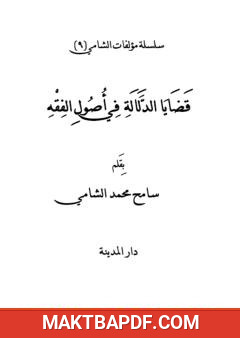 سلسلة مؤلفات الشامي (٩)
قَضَايَا الدَّلَالَةِ فِي أُصُولِ الفِقْهِ
بِقَلم
سامح محمد الشامي
دار المدينة
MAKTBAPDF.COM